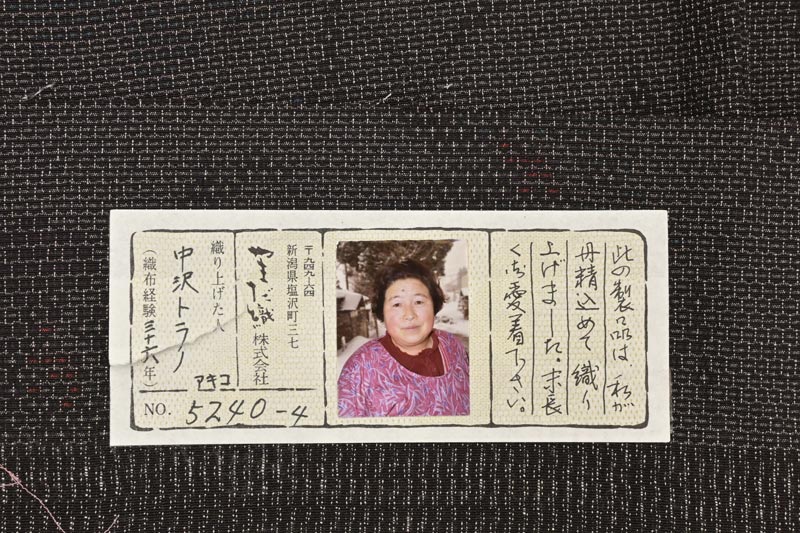 此の製品は、私が
丹精込めて織り
上げました。末長
くご愛着下さい。
〒九四九-六四
新潟県塩沢町三七
やまだ織株式会社
織り上げた人
中沢トラノ
(織布経験三十六年)
アキコ
NO. 5240-4